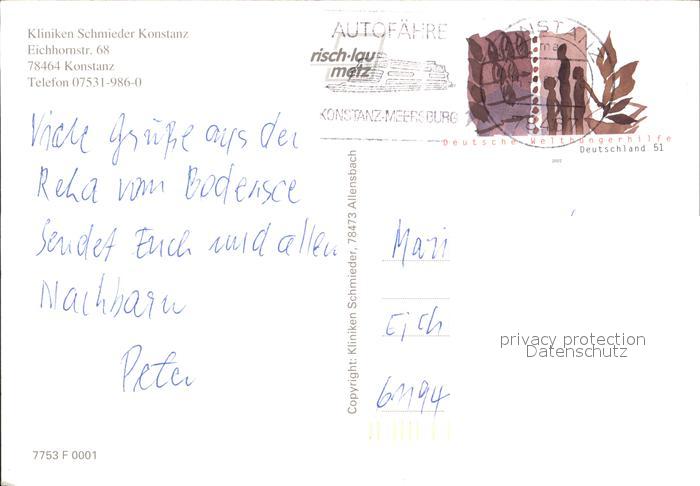 Kliniken Schmieder Konstanz
Eichhornstr. 68
78464 Konstanz
Telefon 07531-986-0
AUTOFÄHRE
risch-lau
metz
KONSTANZ-MEERSBURG
KONSTANZ
Deutsche Welthungerhilfe
Deutschland 51
2002
Viele Grüße aus der
Reha vom Bodensee
Sendet Euch und allen
Nachbarn
Peter
Copyright: Kliniken Schmieder, 78473 Allensbach
Mari
Eich
61194
privacy protection
Datenschutz
7753 F 0001